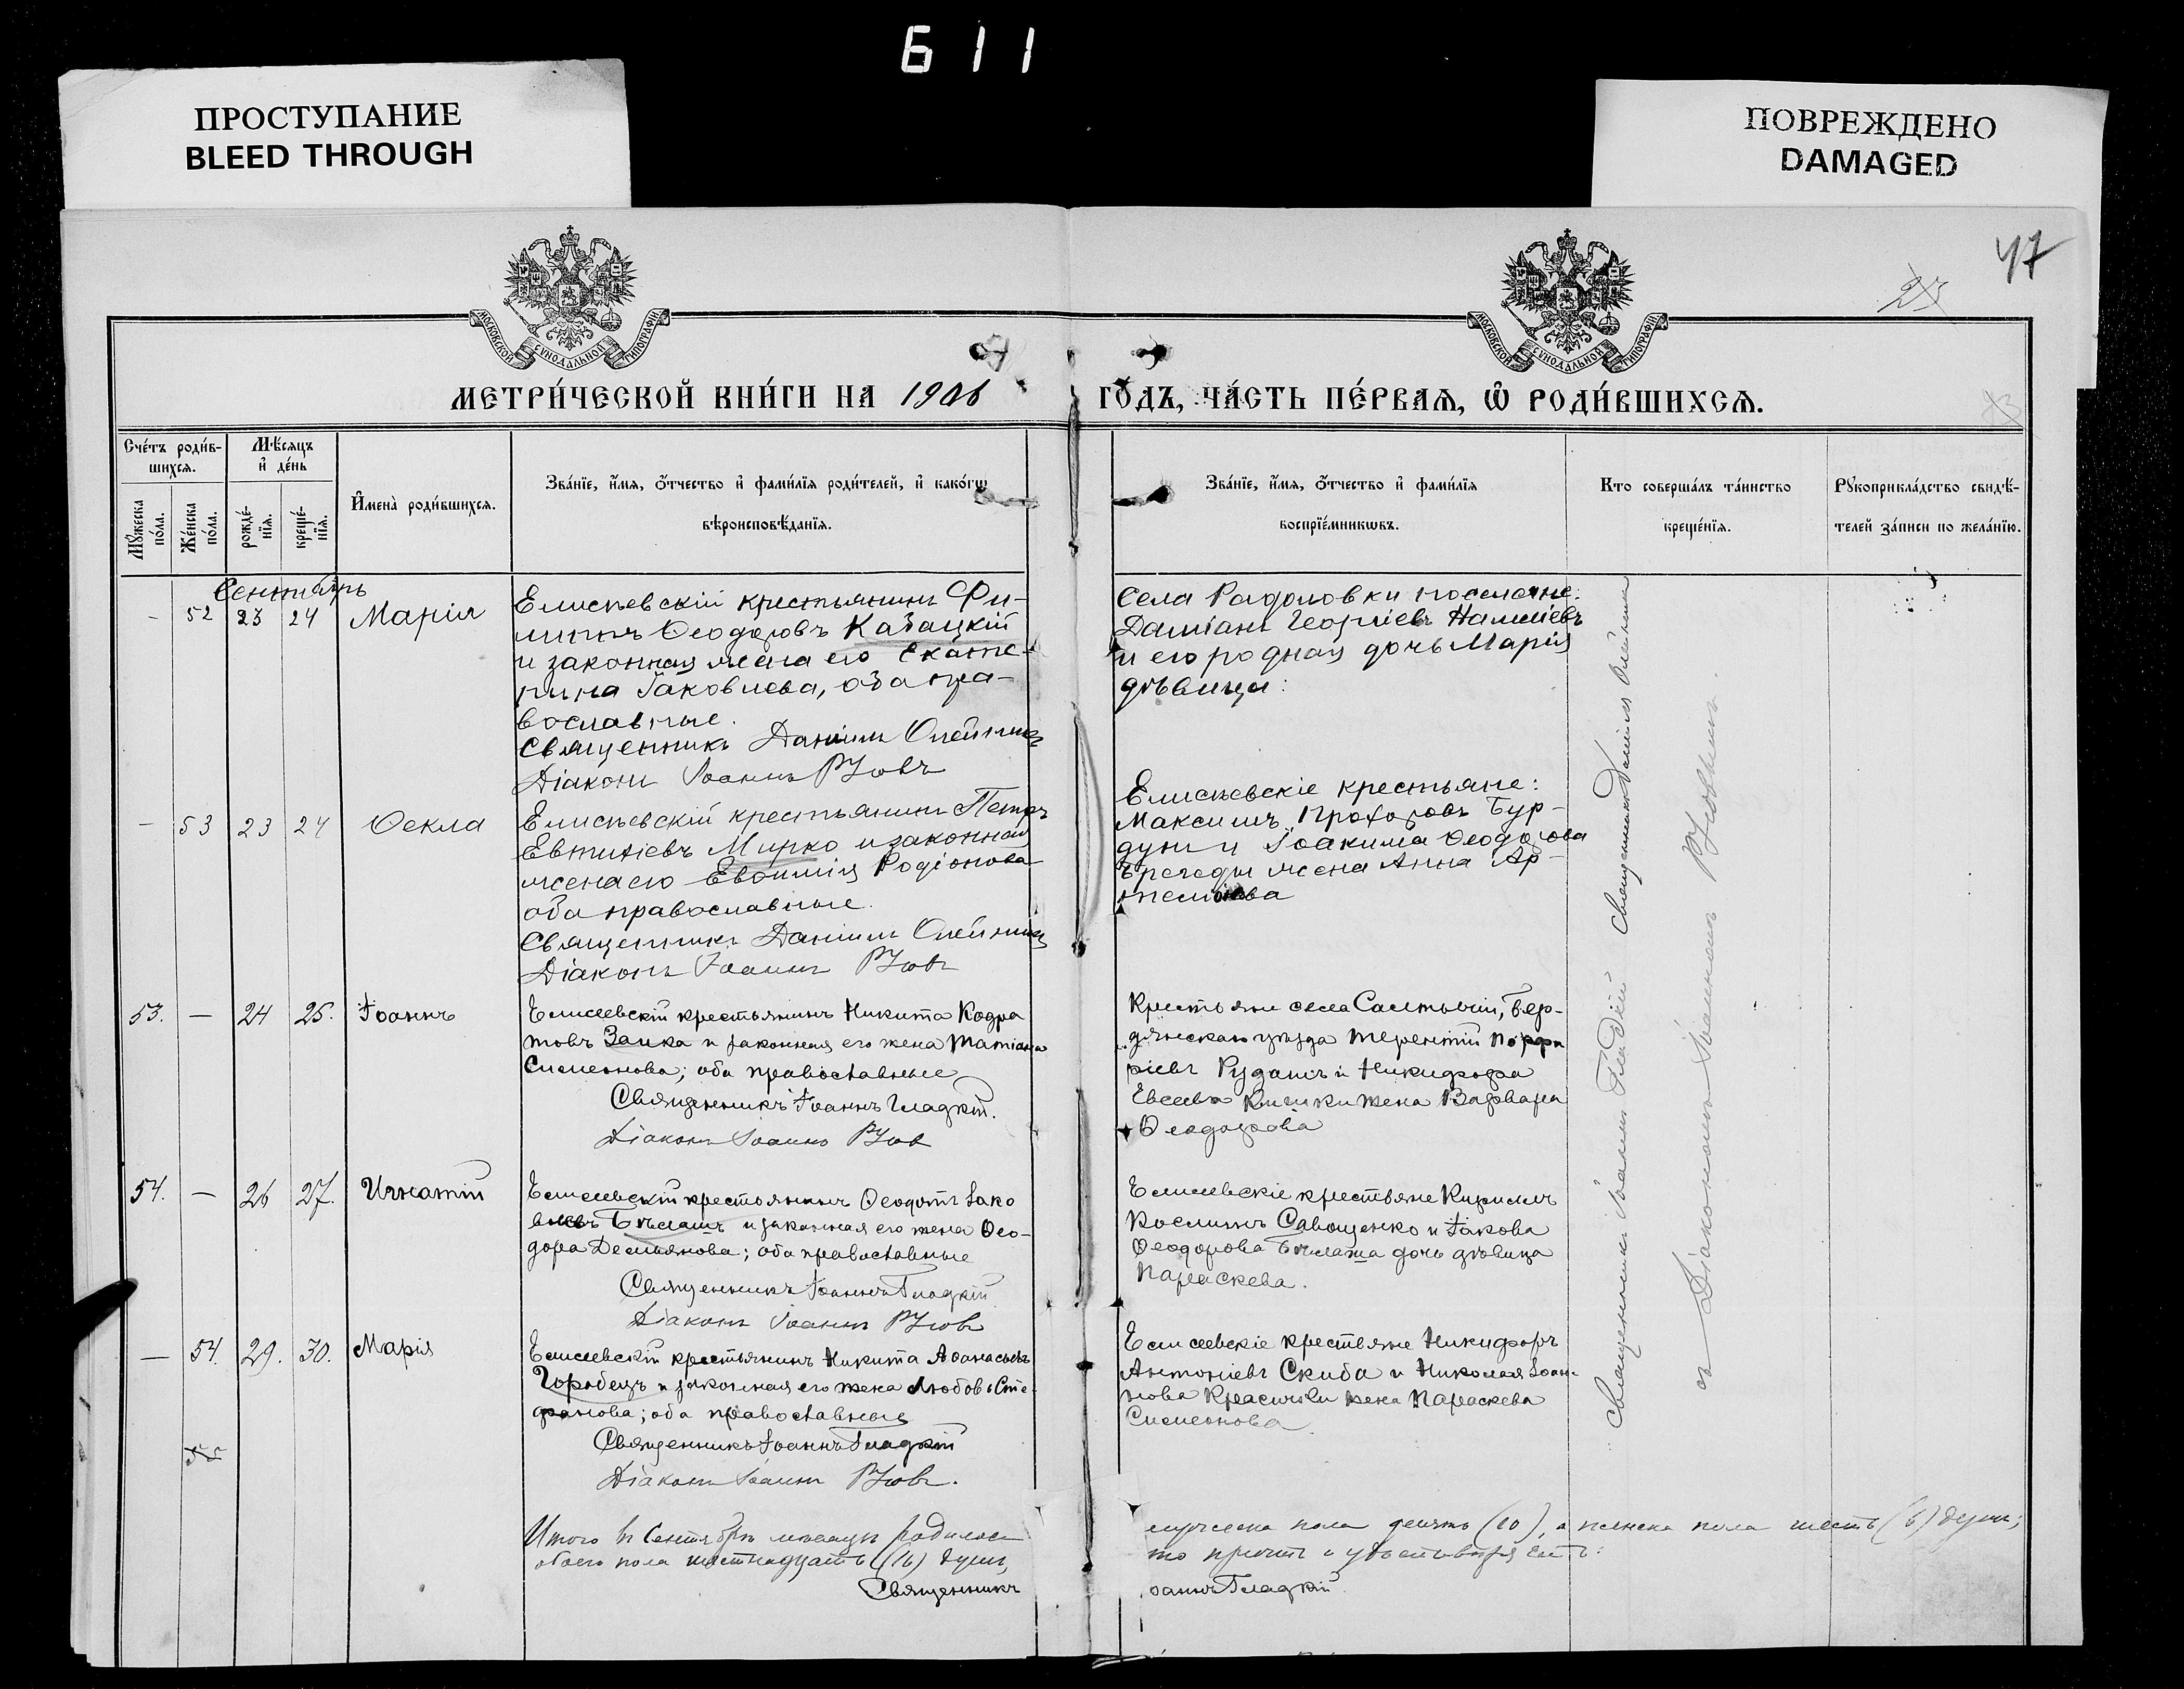 611
ПРОСТУПАНИЕ
BLEED THROUGH
ПОВРЕЖДЕНО
DAMAGED
47
МОСКОВСКОЙ СѴНОДАЛЬНОЙ ТИПОГРАФІИ
МОСКОВСКОЙ СѴНОДАЛЬНОЙ ТИПОГРАФІИ
МЕТРИ́ЧЕСКОЙ КНИ́ГИ НА 1906 ГО́ДЪ, ЧА́СТЬ ПЕ́РВАѦ, Ѽ РОДИ́ВШИХСѦ.
Сче́тъ роди́в-
шихсѧ.
Мѣ́сѧцъ
и҆ де́нь
Мꙋ́жеска по́ла.
Же́нска по́ла.
рожде́-
нїѧ.
креще́-
нїѧ.
И҆мена̀ роди́вшихсѧ.
Зва́нїе, и҆́мѧ, ѻ҆́тчество и҆ фами́лїѧ роди́телей, и҆ како́гѡ
вѣроисповѣ́данїѧ.
Зва́нїе, и҆́мѧ, ѻ҆́тчество и҆ фами́лїѧ
воспрїе́мникѡвъ.
Кто соверша́лъ та́инство
креще́нїѧ.
Рꙋкоприкла́дство свидѣ́-
телей за́писи по жела́нїю.
Сентябрь
- 52 23 24 Марія
Елисѣевскій крестьянинъ Фи-
липпъ Ѳеодоровъ Казацкій
и законная жена его Екате-
рина Іаковлева, оба пра-
вославные.
Священникъ Даніилъ Олейникъ
Діаконъ Іоаннъ
Села Радоловки поселяне:
Даміанъ Георгіевъ
и его родная дочь Марія
дѣвица:
- 53 23 24 Ѳекла
Елисѣевскій крестьянинъ Петръ
Евтихіевъ Мирко и законная
жена его Евѳимія Родіонова
оба православные.
Священникъ Даніилъ Олейникъ
Діаконъ Іоаннъ
Елисѣевскіе крестьяне:
Максимъ Прохоровъ Бур-
дунъ и Іоакима Ѳеодорова
жена Анна Ар-
темова
53. — 24 25. Іоаннъ
Елисеевскій крестьянинъ Никита Кодра
товъ Заика и законная его жена Татіана
Симеонова; оба православные
Священникъ Іоаннъ Гладкій.
Діаконъ Іоаннъ
Крестьяне села Салтычіи, Бер-
дянскаго уѣзда Терентій Порфи
ріевъ Рудашъ и Никифора
Евсеева жена Варвара
Ѳеодорова
54. — 26 27. Игнатій
Елисеевскій крестьянинъ Ѳеодотъ Іако
влевъ Бѣлашъ и законная его жена Ѳео-
дора Демьянова; оба православные
Священникъ Іоаннъ Гладкій
Діаконъ Іоаннъ
Елисеевскіе крестьяне Кириллъ
Савощенко и Іакова
Ѳеодорова Бѣлаша дочь дѣвица
Параскева.
— 54. 29. 30. Марія
Елисеевскій крестьянинъ Никита Аѳанасьевъ
Горобецъ и законная его жена Любовь Сте-
фанова; оба православные
Священникъ Іоаннъ Гладкій
Діаконъ Іоаннъ
Елисеевскіе крестьяне Никифоръ
Антоніевъ Скиба и Николая Іоан-
нова жена Параскева
Симеонова
55
Священникъ Іоаннъ Гладкій Священникъ Даніилъ Олейникъ
съ Діакономъ Іоанномъ
Итого въ Сентябрѣ мѣсяцѣ родилось
обоего пола шестнадцать (16) душъ,
мужеска пола десять (10), а женска пола шесть (6) душъ;
Священникъ
Іоаннъ Гладкій